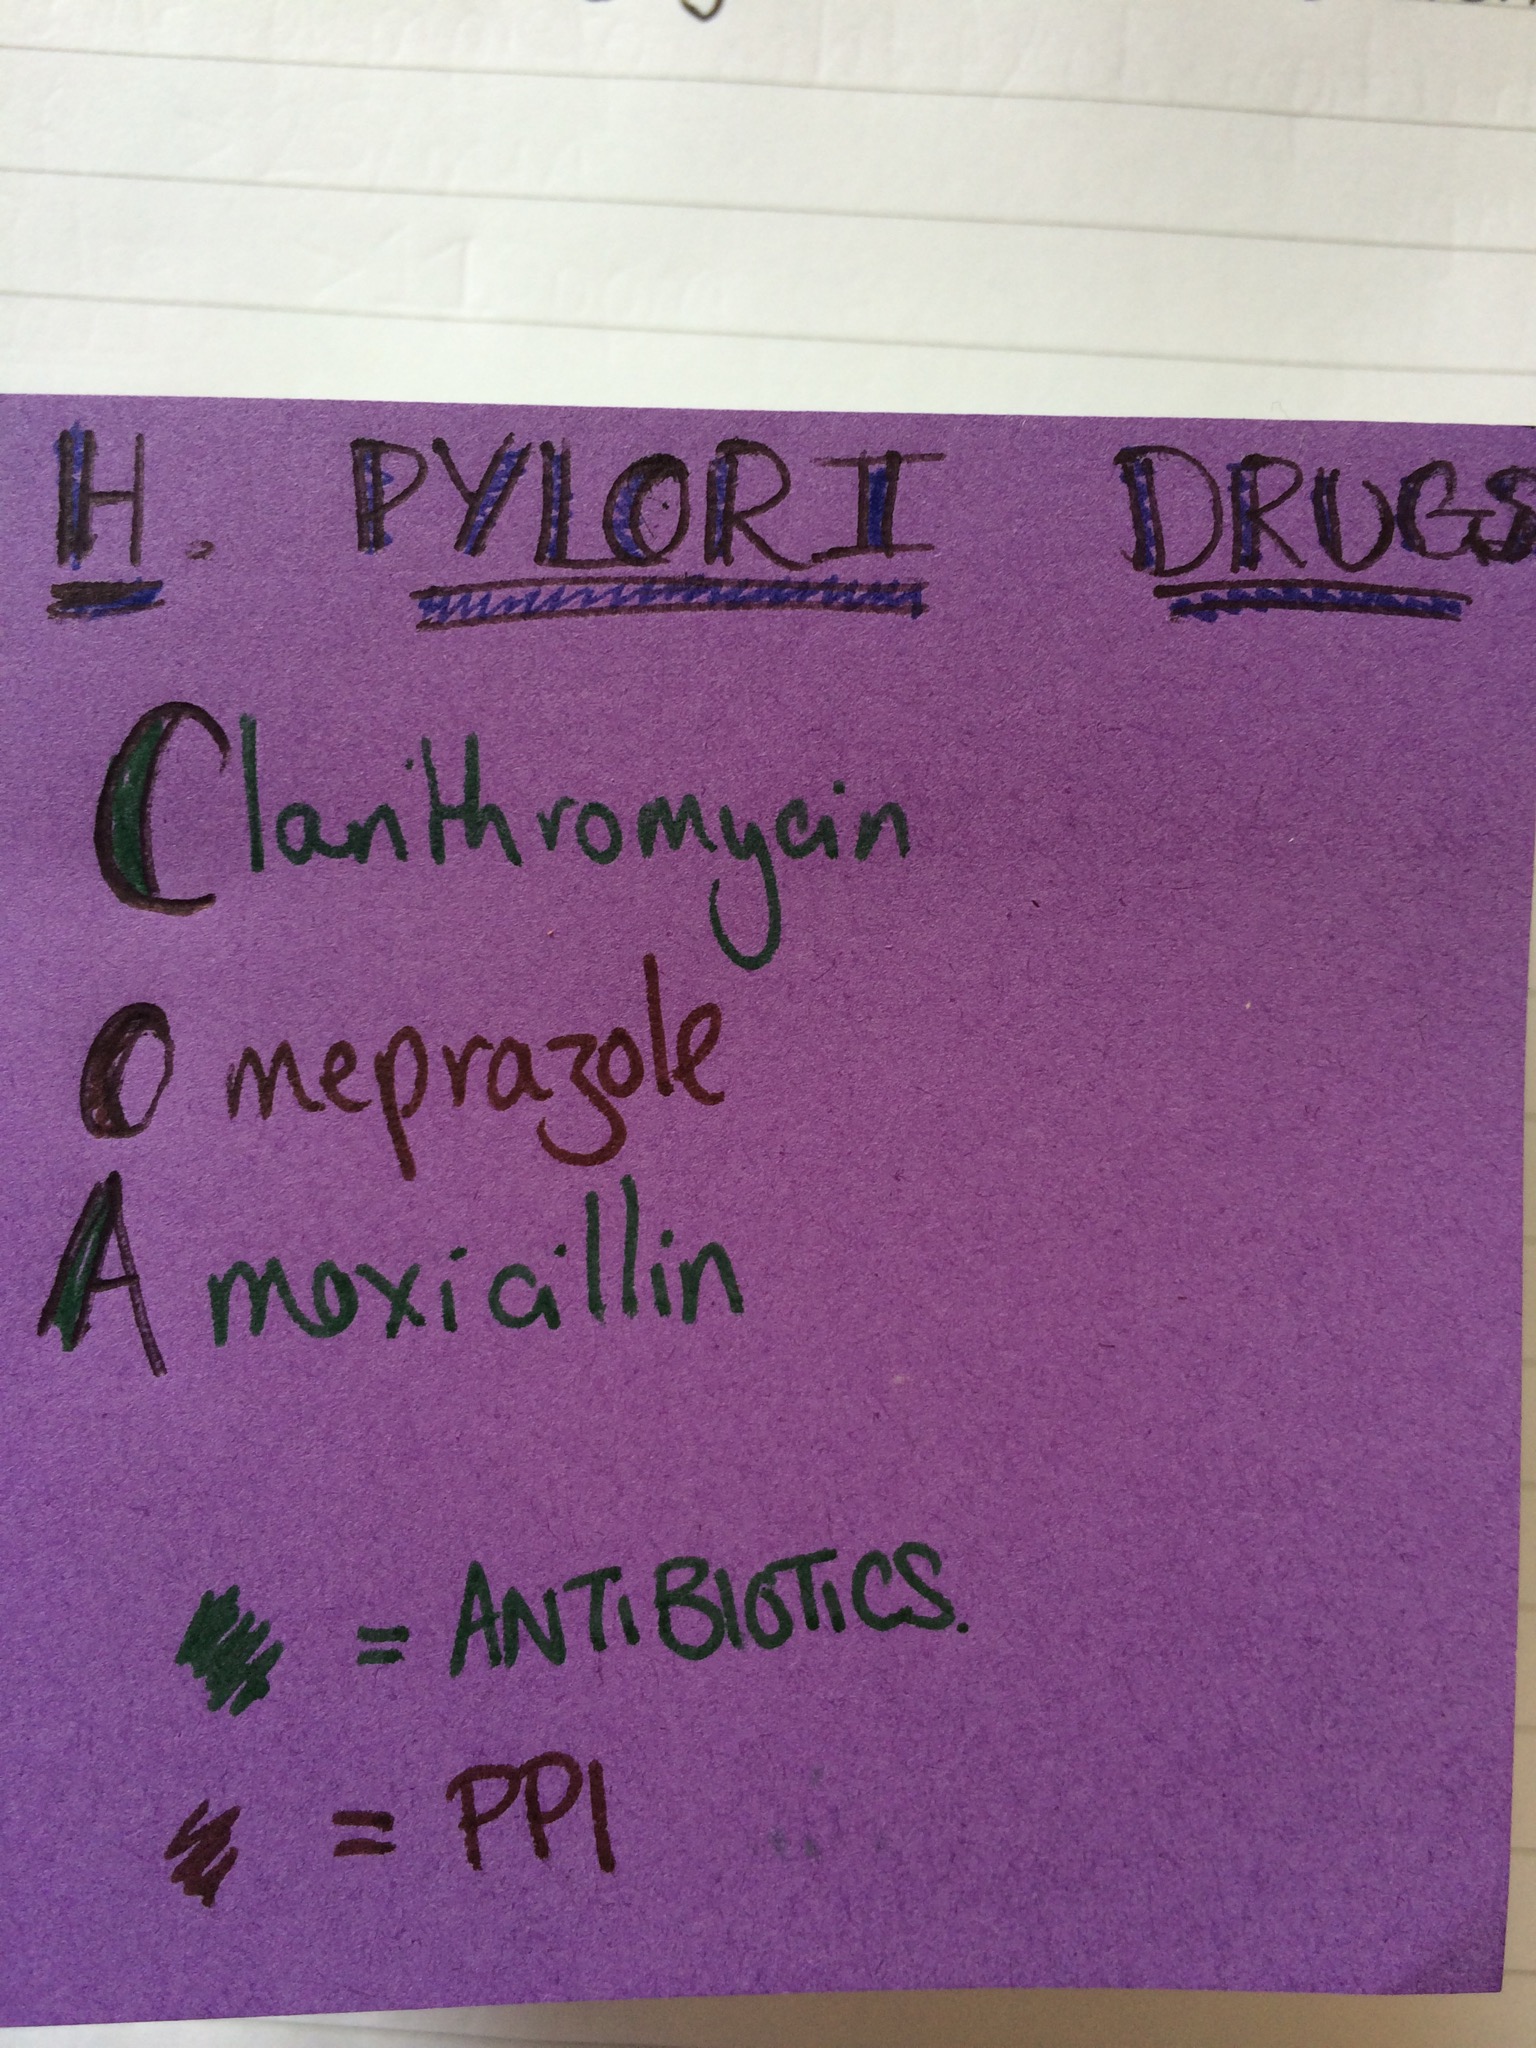 H. PYLORI DRUGS
Clarithromycin
Omeprazole
Amoxicillin
= ANTIBIOTICS.
= PPI